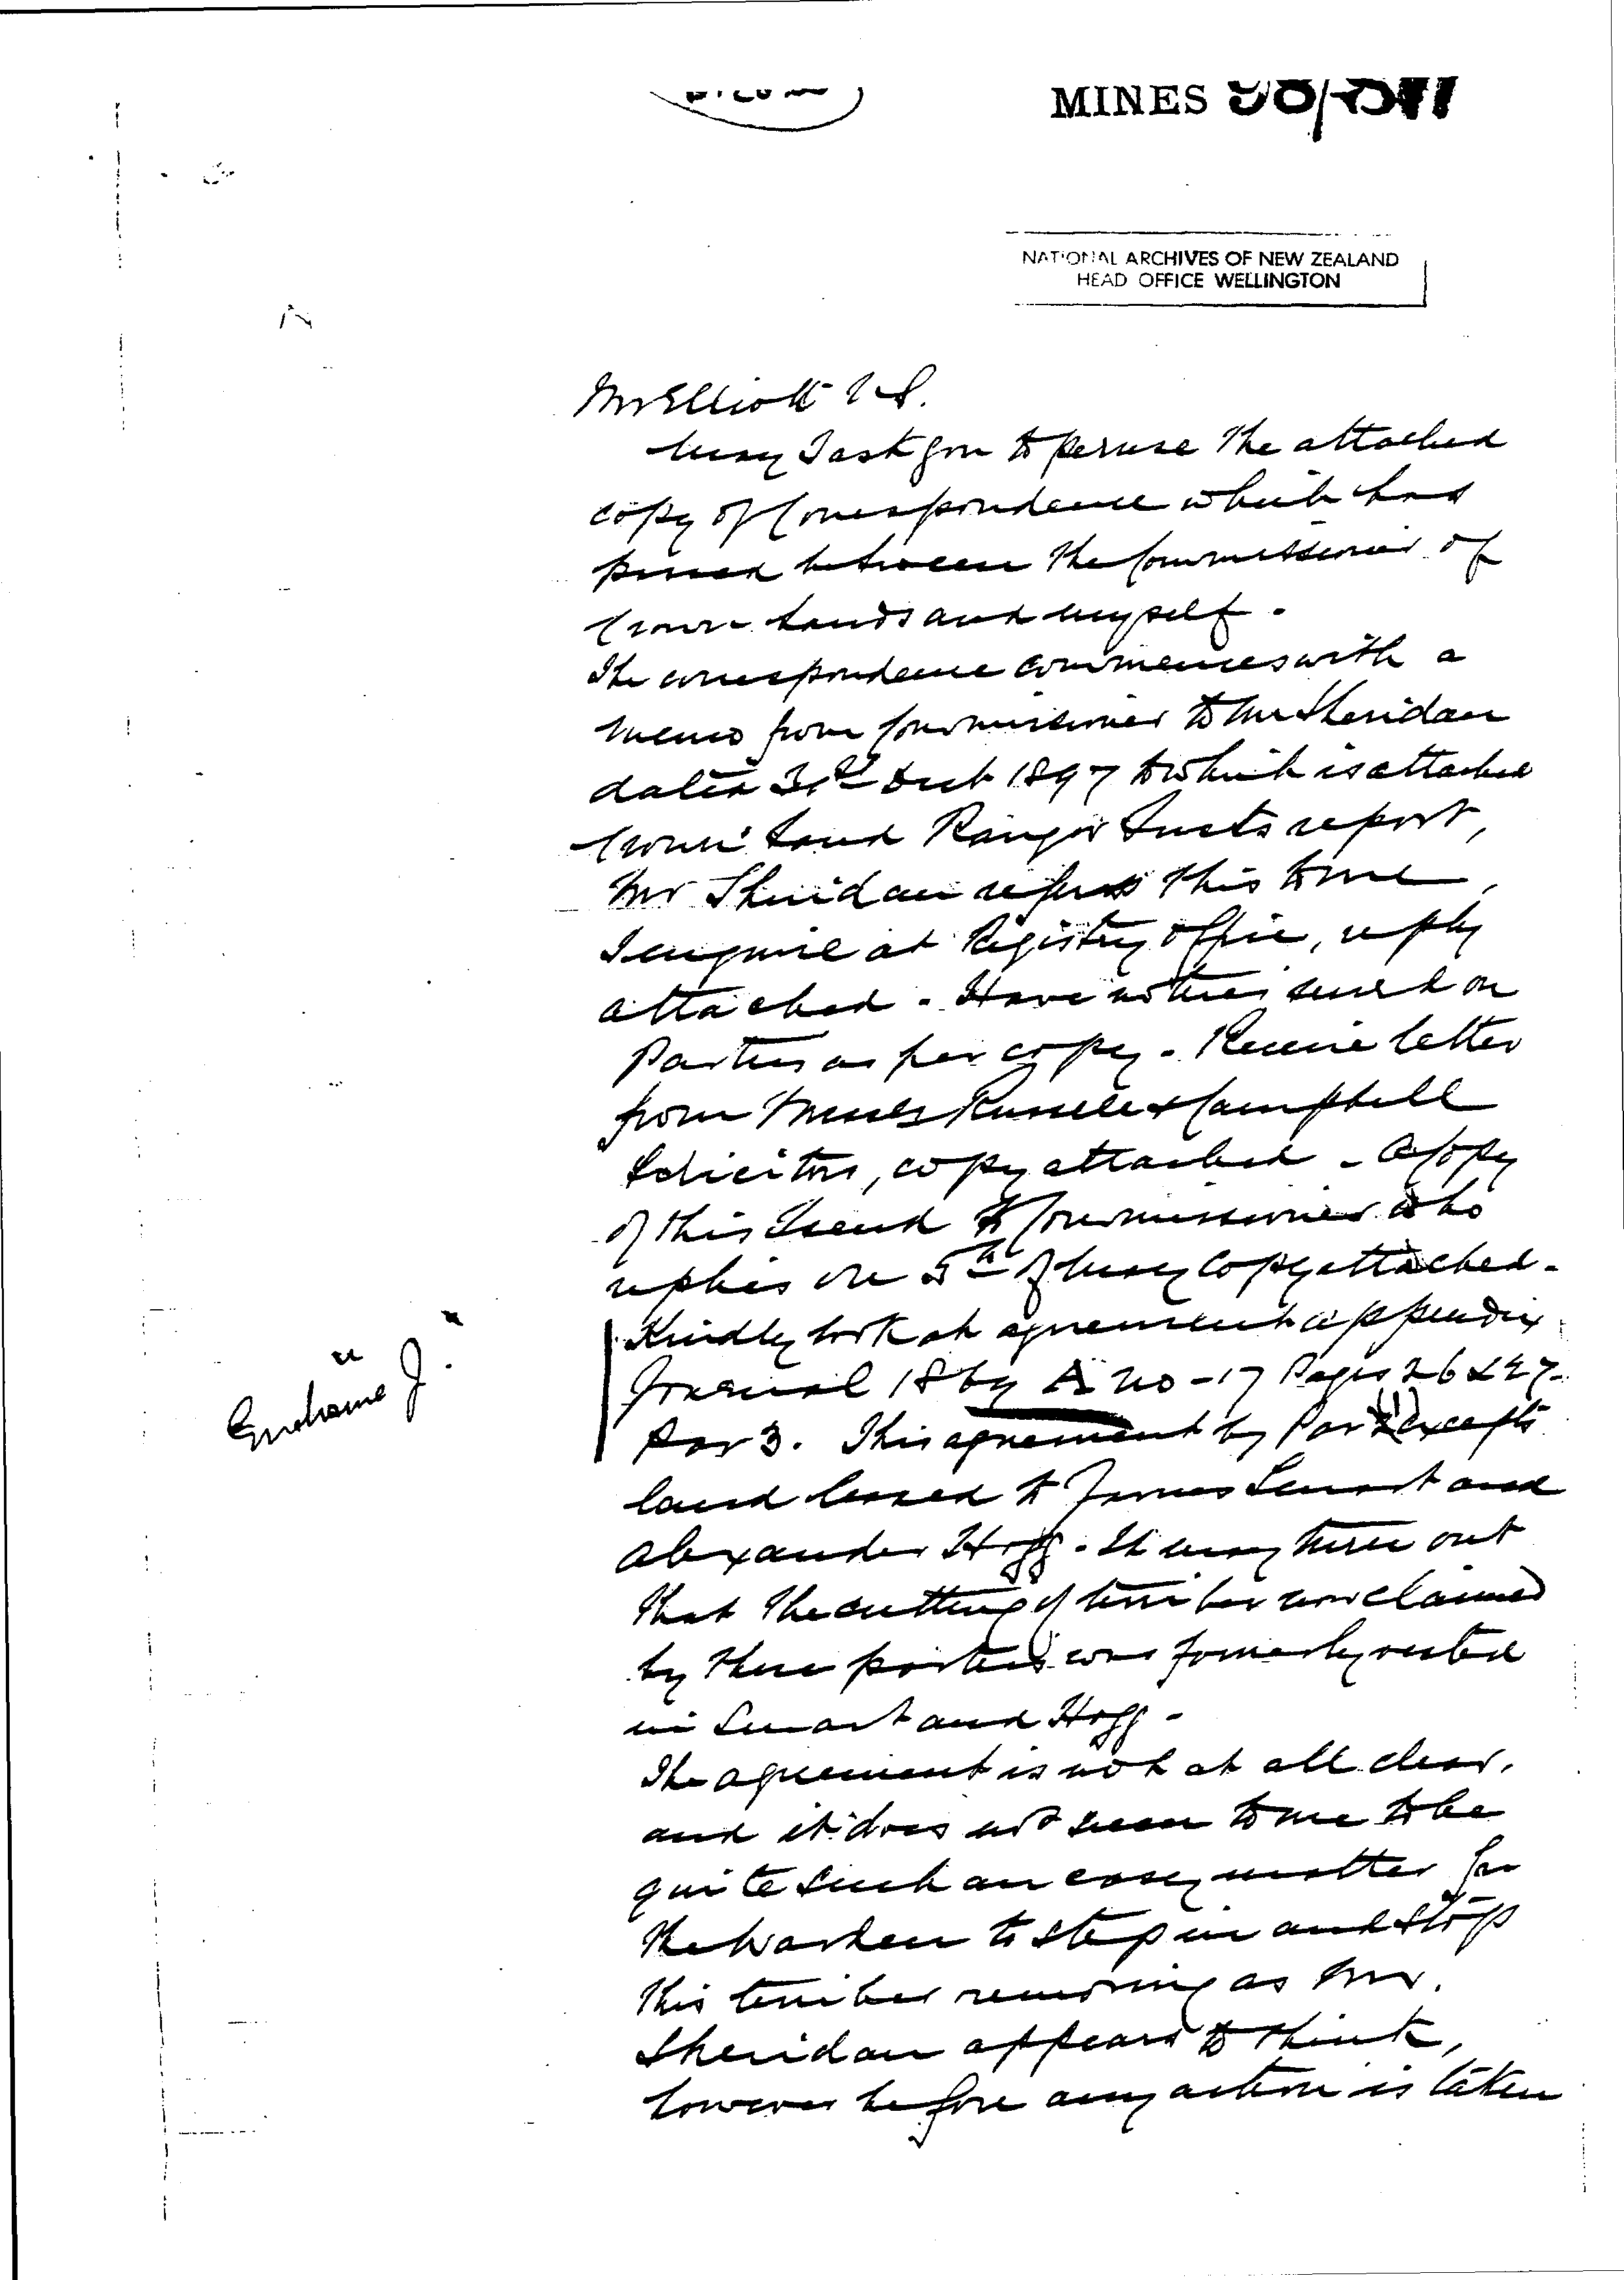 MINES
NATIONAL ARCHIVES OF NEW ZEALAND
HEAD OFFICE WELLINGTON
Mr Elliott U.S.
May I ask you to peruse the attached
copy of Correspondence which has
passed between the Commissioner of
Crown Lands and myself.
The correspondence commences with a
memo from Commissioner to Mr Sheridan
dated 31st Decb 1897 to which is attached
Crown Land Ranger report,
Mr Sheridan refers this to me,
I enquire at Registry Office, reply
attached. Have notices served on
Parties as per copy. Receive letter
from Messrs Russell & Campbell
Solicitors, copy attached. A Copy
of this I send to Commissioner who
replies on 5th of May Copy attached.
Kindly look at agreement appendix
Journal 1869 A No-17 Pages 26 & 27
Par 3. This agreement by Par (1) excepts
land leased to James Smart and
Alexander Hogg. It may turn out
that the cutting of timber now claimed
by these parties was formerly vested
in Smart and Hogg.
The agreement is not at all clear,
and it does not seem to me to be
quite such an easy matter for
the Warden to step in and stop
this timber removing as Mr.
Sheridan appears to think,
however before any action is taken
Enclosure J.